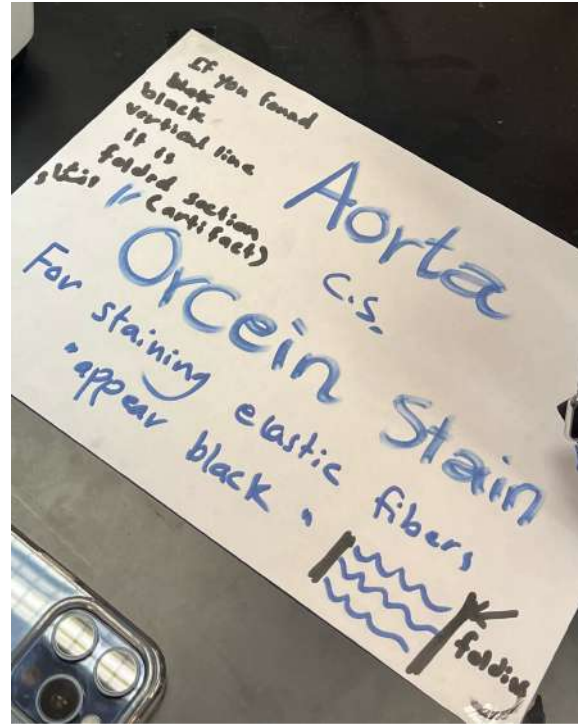 If you found
black
vertical line
it is
folded section
(artifact)
Aorta
c.s.
Orcein Stain
For staining elastic fibers
"appear black"
folding